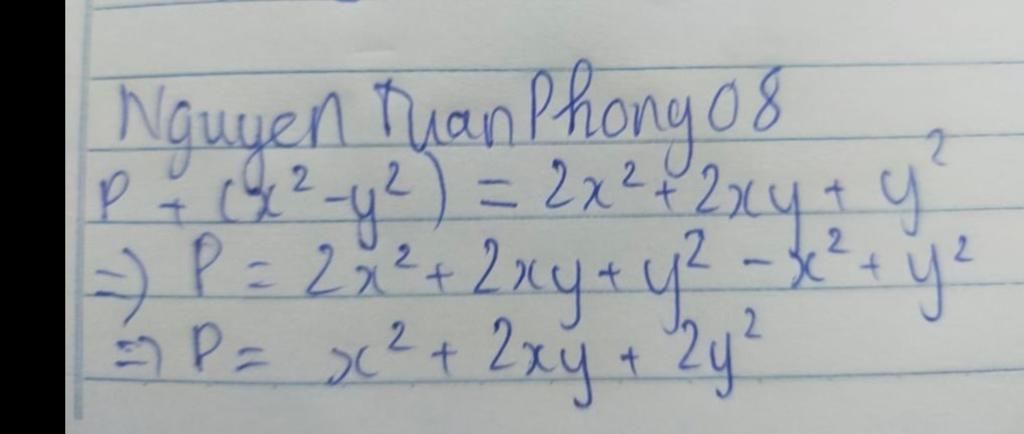 Nguyen Tuan Phong 08
P + (x² - y²) = 2x² + 2xy + y²
=> P = 2x² + 2xy + y² - x² + y²
=> P = x² + 2xy + 2y²